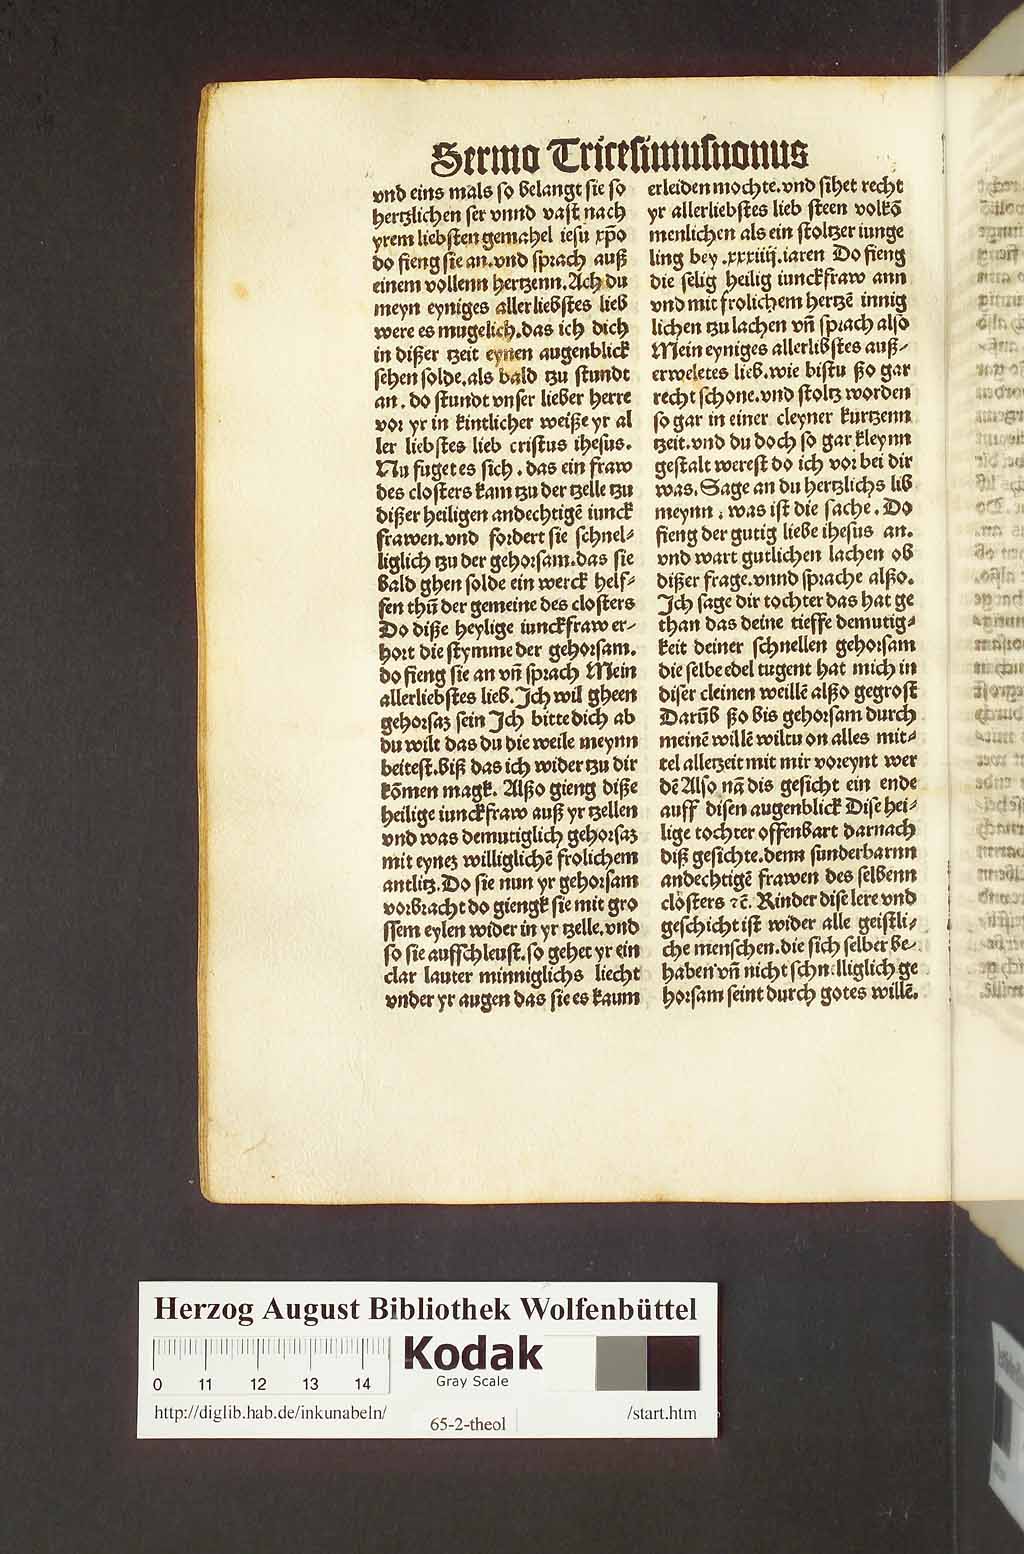 Sermo Tricesimusnonus
vnd eins mals so belangt sie so
hertzlichen ser vnnd vast nach
yrem liebsten gemahel iesu xp̄o
do fieng sie an.vnd sprach auß
einem vollenn hertzenn.Ach du
meyn eyniges allerliebstes lieb
were es mugelich.das ich dich
in dißer tzeit eynen augenblick
sehen solde.als bald tzu stundt
an.do stundt vnser lieber herre
vor yr in kintlicher weiße yr al
ler liebstes lieb cristus ihesus.
Nu fuget es sich.das ein fraw
des closters kam tzu der tzelle tzu
dißer heiligen andechtigē iunck
frawen.vnd fordert sie schnel⸗
liglich tzu der gehorsam.das sie
bald ghen solde ein werck helf⸗
fen thū der gemeine des closters
Do diße heylige iunckfraw er⸗
hort die stymme der gehorsam.
do fieng sie an vn̄ sprach Mein
allerliebstes lieb.Ich wil gheen
gehorsaꝫ sein Ich bitte dich ab
du wilt das du die weile meynn
beitest.biß das ich wider tzu dir
kōmen magk. Alßo gieng diße
heilige iunckfraw auß yr tzellen
vnd was demutiglich gehorsaꝫ
mit eyneꝫ williglichē frolichem
antlitz.Do sie nun yr gehorsam
vorbracht do giengk sie mit gro
ssem eylen wider in yr tzelle.vnd
so sie auffchleust.so gehet yr ein
clar lauter minniglichs liecht
vnder yr augen das sie es kaum
erleiden mochte.vnd sihet recht
yr allerliebstes lieb steen volkō
menlichen als ein stoltzer iunge
ling bey .xxxiiij.iaren Do fieng
die selig heilig iunckfraw ann
vnd mit frolichem hertzē innig
lichen tzu lachen vn̄ sprach also
Mein eyniges allerlibstes auß⸗
erweletes lieb.wie bistu ßo gar
recht schone.vnd stoltz worden
so gar in einer cleyner kurtzenn
tzeit.vnd du doch so gar kleynn
gestalt werest do ich vor bei dir
was. Sage an du hertzlichs lib
meynn . was ist die sache . Do
fieng der gutig liebe ihesus an.
vnd wart gutlichen lachen ob
dißer frage.vnnd sprache alßo.
Ich sage dir tochter das hat ge
than das deine tieffe demutig⸗
keit deiner schnellen gehorsam
die selbe edel tugent hat mich in
diser cleinen weillē alßo gegrost
Darūb ßo bis gehorsam durch
meinē willē wiltu on alles mit⸗
tel alletzeit mit mir voreynt wer
dē Also nā dis gesicht ein ende
auff disen augenblick Dise hei⸗
lige tochter offenbart darnach
diß gesichte.denn sunderbarnn
andechtigē frawen des selbenn
closters ⁊c̄. Rinder dise lere vnd
geschicht ist wider alle geistli⸗
che menschen.die sich selber be⸗
haben vn̄ nicht schnelliglich ge
horsam seint durch gotes willē.
Herzog August Bibliothek Wolfenbüttel
Kodak
Gray Scale
0 11 12 13 14
http://diglib.hab.de/inkunabeln/
65-2-theol
/start.htm